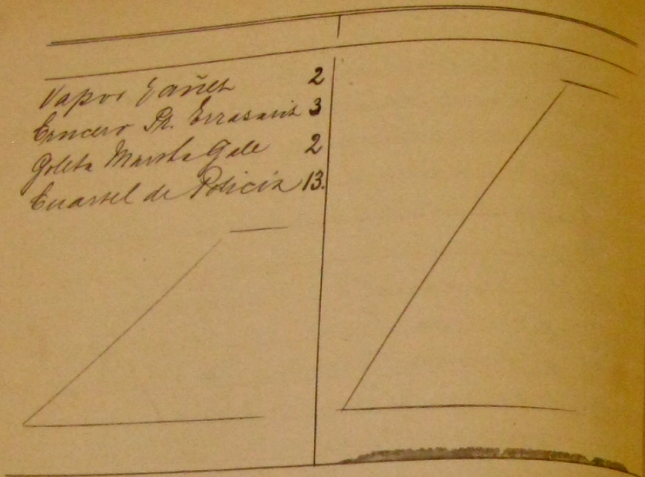 Vapor Yañez 2
Crucero Pt. Errasuriz 3
Goleta Martha Gale 2
Cuartel de Policia 13.